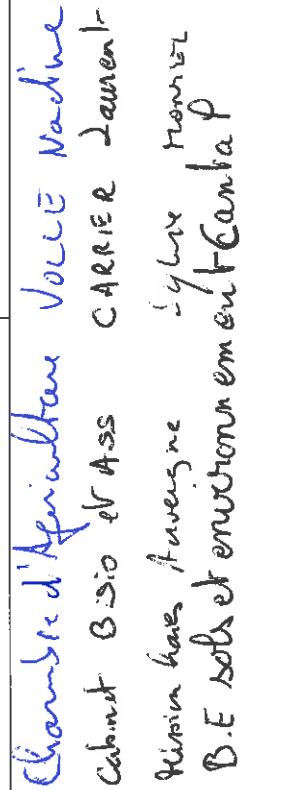 Chambre d'Agriculture VOLLE Nadine
Cabinet Bisio et Ass CARRIER Laurent
Mission Haies Auvergne Sylvie Monier
B.E sols et environnement Cantal